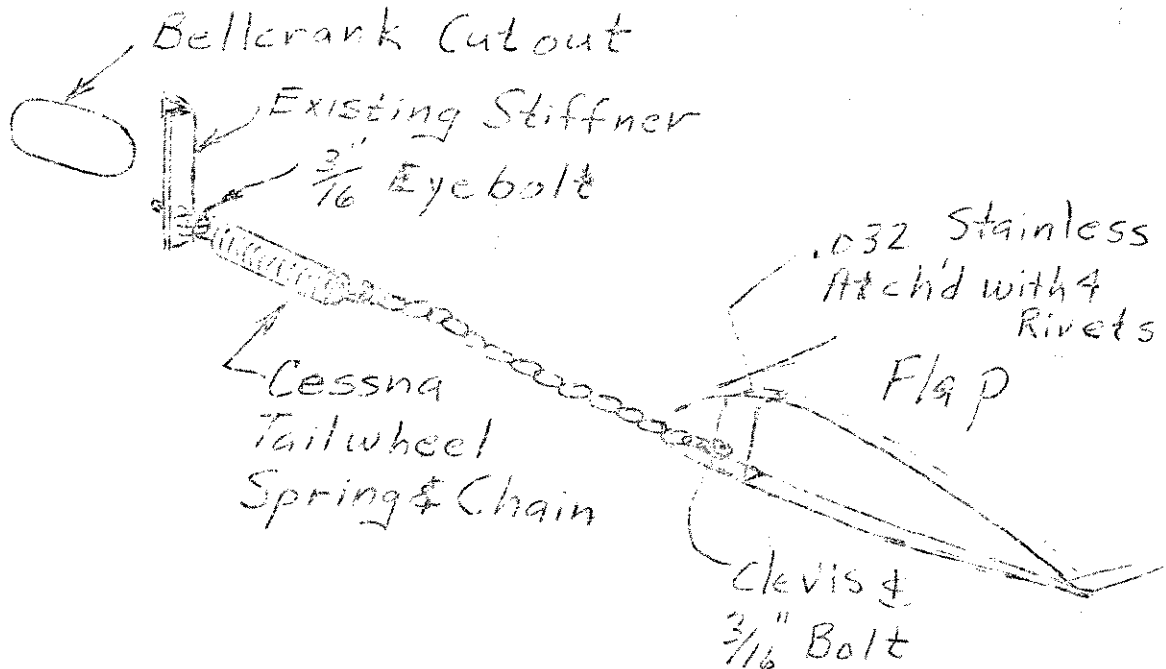 Bellcrank Cutout
Existing Stiffner
3/16" Eyebolt
.032 Stainless
Atch'd with 4
Rivets
Flap
Cessna
Tailwheel
Spring & Chain
Clevis &
3/16" Bolt